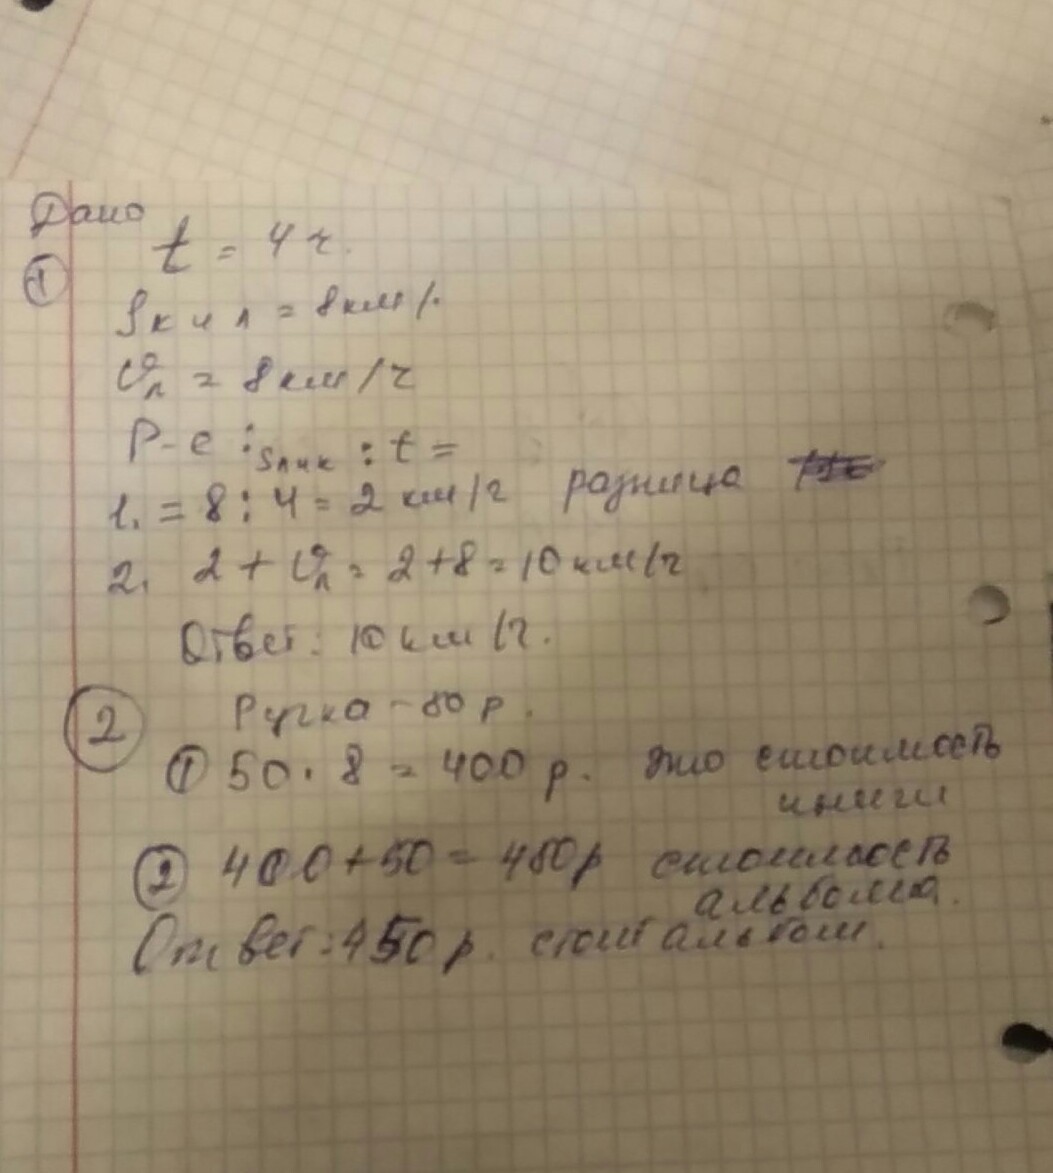 Дано
t = 4 ч.
①
Sк и л = 8 км/.
υл = 8 км/ч
Р-е : Sлик : t =
1. = 8 : 4 = 2 км/ч разница
2. 2 + υл = 2+8 = 10 км/ч
Ответ: 10 км/ч.
② Ручка - 50 р.
① 50 · 8 = 400 р. это стоимость
книги
② 400 + 50 = 450р стоимость
альбома.
Ответ: 450 р. стоит альбом.